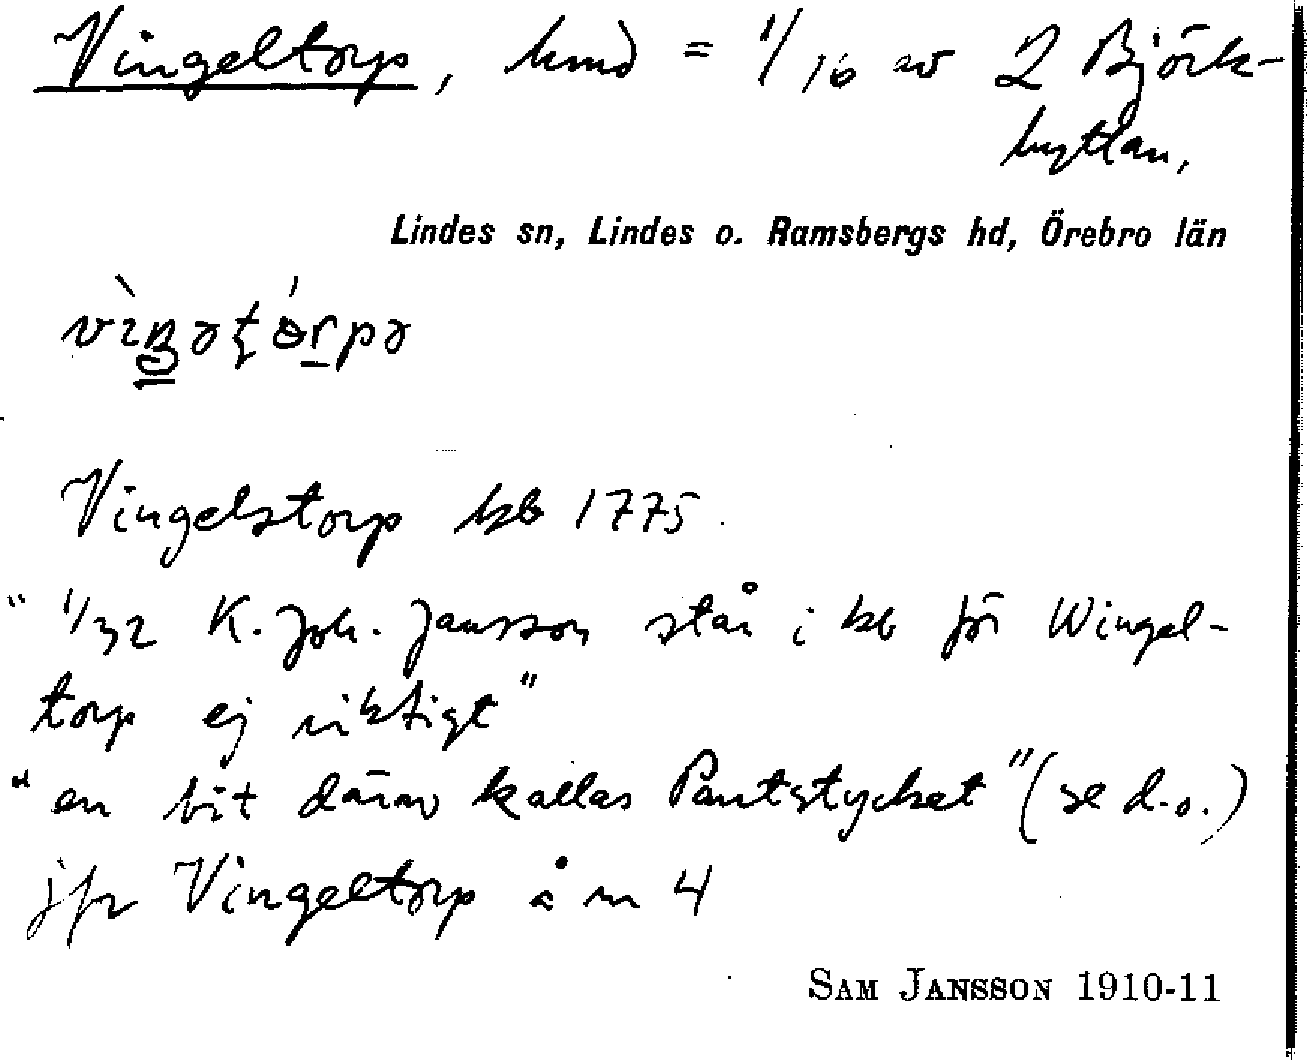 Vingeltorp, hmd = 1/16 av 2 Björk-
hyttan,
Lindes sn, Lindes o. Ramsbergs hd, Örebro län
Vingelstorp kb 1775.
" 1/32 K. Joh. Jansson står i kb för Wingel-
torp ej riktigt"
"en bit därav kallas Pantstycket" (se d.o.)
jfr Vingeltorp å nr 4
SAM JANSSON 1910-11